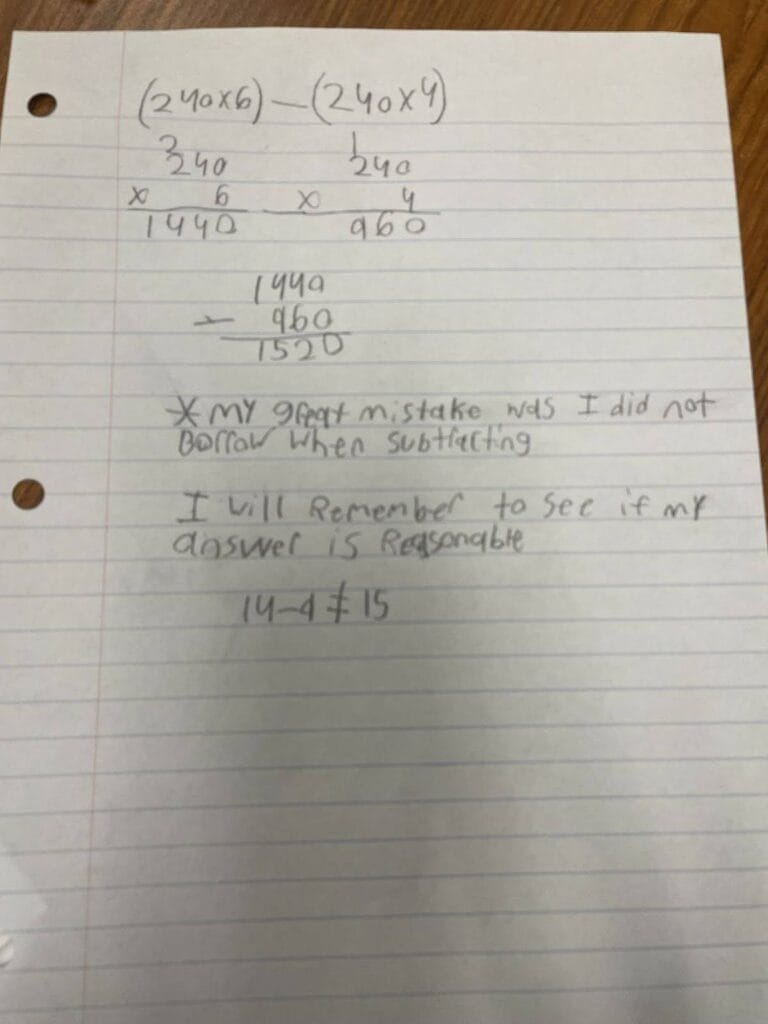 (240x6)-(240x4)
2 1
240 240
x 6 x 4
1440 960
1440
- 960
1520
* my great mistake was I did not
Borrow when subtracting
I will Remember to see if my
answer is Reasonable
14-9≠15